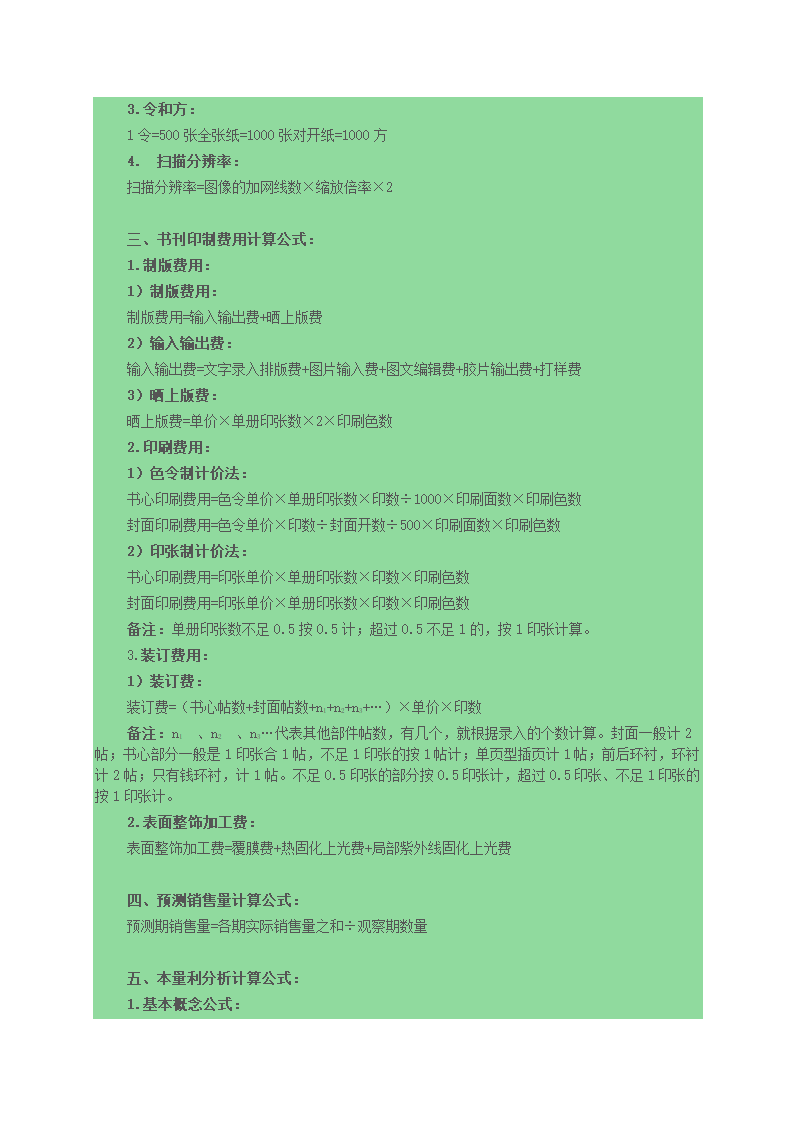 3.令和方：
1令=500张全张纸=1000张对开纸=1000方
4. 扫描分辨率：
扫描分辨率=图像的加网线数×缩放倍率×2
三、书刊印制费用计算公式：
1.制版费用：
1）制版费用：
制版费用=输入输出费+晒上版费
2）输入输出费：
输入输出费=文字录入排版费+图片输入费+图文编辑费+胶片输出费+打样费
3）晒上版费：
晒上版费=单价×单册印张数×2×印刷色数
2.印刷费用：
1）色令制计价法：
书心印刷费用=色令单价×单册印张数×印数÷1000×印刷面数×印刷色数
封面印刷费用=色令单价×印数÷封面开数÷500×印刷面数×印刷色数
2）印张制计价法：
书心印刷费用=印张单价×单册印张数×印数×印刷色数
封面印刷费用=印张单价×单册印张数×印数×印刷色数
备注：单册印张数不足0.5按0.5计；超过0.5不足1的，按1印张计算。
3.装订费用：
1）装订费：
装订费=（书心帖数+封面帖数+n₁+n₂+n₃+…）×单价×印数
备注：n₁ 、n₂ 、n₃…代表其他部件帖数，有几个，就根据录入的个数计算。封面一般计2
帖；书心部分一般是1印张合1帖，不足1印张的按1帖计；单页型插页计1帖；前后环衬，环衬
计2帖；只有钱环衬，计1帖。不足0.5印张的部分按0.5印张计，超过0.5印张、不足1印张的
按1印张计。
2.表面整饰加工费：
表面整饰加工费=覆膜费+热固化上光费+局部紫外线固化上光费
四、预测销售量计算公式：
预测期销售量=各期实际销售量之和÷观察期数量
五、本量利分析计算公式：
1.基本概念公式：